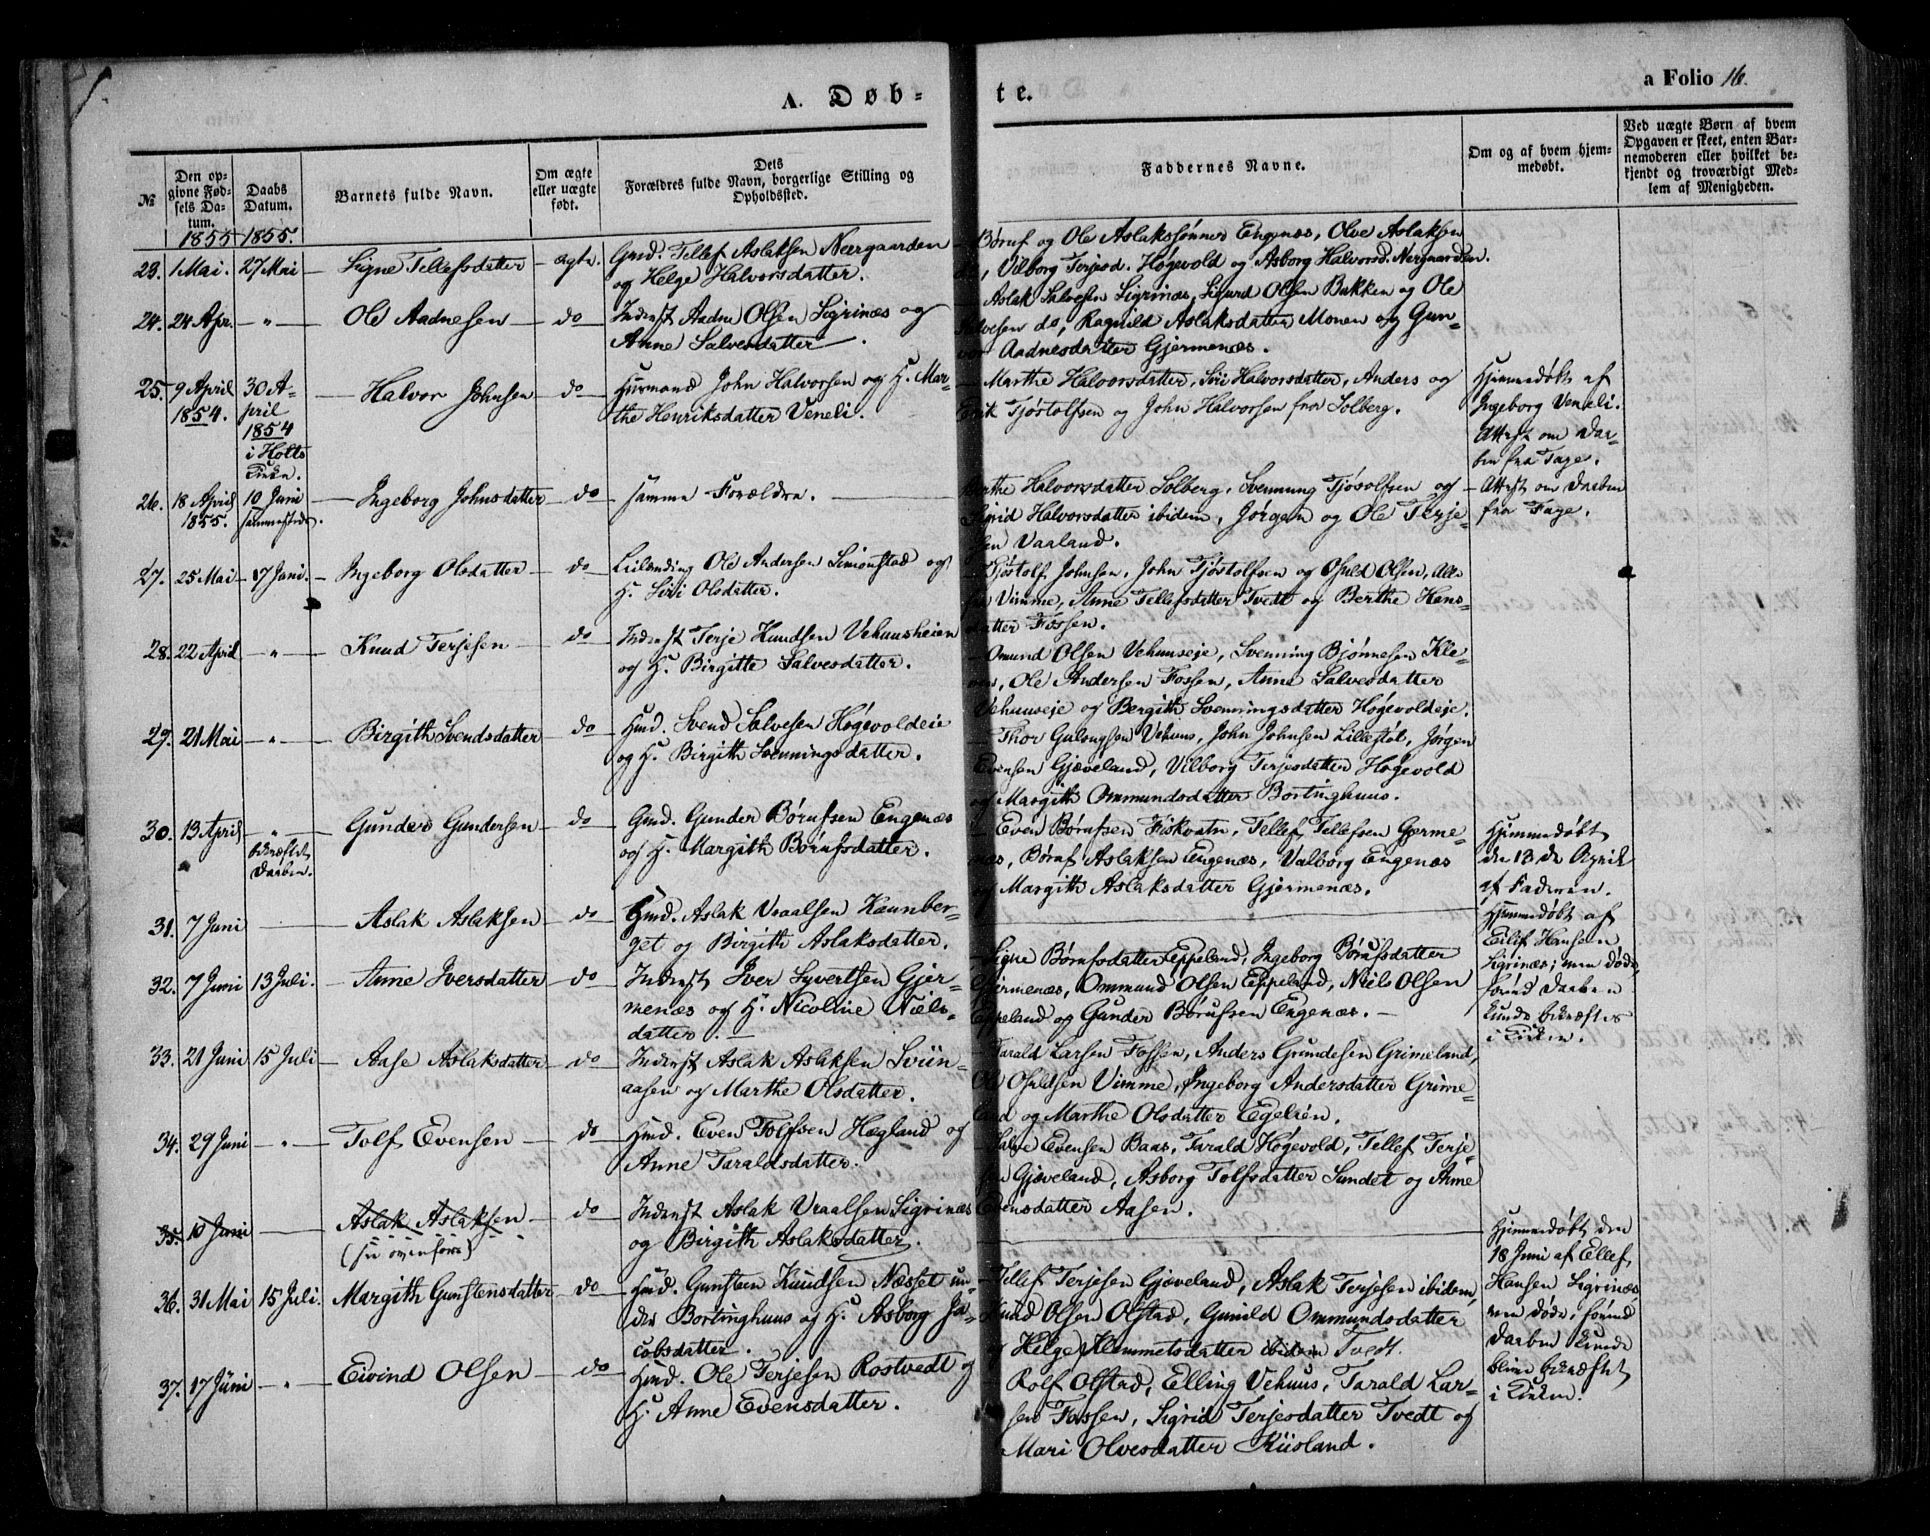 A. Døb-
te.
a Folio 16.
№
Den op-
givne Fød-
sels Da-
tum.
Daabs
Datum.
Barnets fulde Navn.
Om ægte
eller uægte
født.
Dets
Forældres fulde Navn, borgerlige Stilling og
Opholdssted.
Faddernes Navne.
Om og af hvem hjem-
medøbt.
Ved uægte Børn af hvem
Opgaven er skeet, enten Bar-
nemoderen eller hvilket be-
kjendt og troværdigt Med-
lem af Menigheden.
1855 1855.
23. 1 Mai. 27 Mai Signe Tellefsdatter ægte. Gmd. Tellef Aslaksen Nærgaarden
og Helge Halvorsdatter.
Børuf og Ole Aslakssønner Engenæs, Olve Aslaksen
do, Vilborg Terjesd. Høgevold og Asborg Halvorsd. Nergaarden.
24. 24 Apr. " Ole Aadnesen do Inderst Aadne Olsen Sigrinæs og
Anne Salvesdatter.
Aslak Salvesen Sigrinæs, Sigurd Olsen Bakken og Ole
Salvesen do, Ragnild Aslaksdatter Monen og Gun-
vor Aadnesdatter Gjermenæs.
25. 9 April
1854.
30 A-
pril
1854
i Holts
Kirke.
Halvor Johnsen do Huusmand John Halvorsen og H. Mar-
the Henriksdatter Veneli.
Marthe Halvorsdatter, Siri Halvorsdatter, Anders og
Erik Tjøstolfsen og John Halvorsen fra Solberg.
Hjemmedøbt af
Ingeborg Veneli.
Attest om Daa-
ben fra Fage.
26. 18 April
1855.
10 Juni
sammesteds.
Ingeborg Johnsdatter do samme Forældre.
Berthe Halvorsdatter Solberg, Svennung Tjøsolfsen og
Sigrid Halvorsdatter ibidem, Jørgen og Ole Terje-
sen Vaaland.
Attest om Daaben
fra Fage.
27. 25 Mai 17 Juni. Ingeborg Olsdatter do Leilænding Ole Andersen Simonstad og
H. Siri Olsdatter.
Tjøstolf Johnsen, John Tjøstolfsen og Osuld Olsen, Alle
fra Vimme, Anne Tellefsdatter Tvedt og Berthe Hans-
datter Fossen.
28. 22 April " Knud Terjesen do Inderst Terje Knudsen Vehuusheien
og H. Birgitte Salvesdatter.
Omund Olsen Vehuuseje, Svenning Bjønnesen Kle-
ven, Ole Andersen Fossen, Anne Salvesdatter
Vehuuseje og Bergith Svenningsdatter Høgevoldeje.
29. 21 Mai " Birgith Svendsdatter do Hmd. Svend Salvesen Høgevoldeie
og H. Birgith Svenningsdatter.
Thor Gulougsen Vehuus, John Johnsen Lillestøl, Jørgen
Evensen Gjæveland, Vilborg Terjesdatter Høgevold
og Margith Ommundsdatter Bortinghuus.
30. 13 April "
bekræftet
Daaben.
Gunder Gundersen do Gmd. Gunder Børufsen Engenæs
og H. Margith Børufsdatter.
Even Børufsen Fiskvatn, Tellef Tellefsen Gjerme-
næs, Børuf Aslaksen Engenæs, Valborg Engenæs
og Margith Aslaksdatter Gjermenæs.
Hjemmedøbt
den 13de April
af Faderen.
31. 7 Juni Aslak Aslaksen do Gmd. Aslak Vraalsen Kaunber-
get og Birgith Aslaksdatter.
Hjemmedøbt af
Eilif Hansen
Sigrinæs; men døde,
førend Daaben
kunde bekræftes
i Kirken.
32. 7 Juni 13 Juli. Anne Iversdatter do Inderst Iver Syvertsen Gjer-
menæs og H. Nicoline Niels-
datter.
Signe Børufsdatter Eppeland, Ingeborg Børufsdatter
Gjermenæs, Ommund Olsen Eppeland, Niels Olsen
Eppeland og Gunder Børufsen Engenæs.
33. 21 Juni 15 Juli Aase Aslaksdatter do Inderst Aslak Aslaksen Sviin-
aasen og Marthe Olsdatter.
Tarald Larsen Fossen, Anders Grundesen Grimeland,
Ole Osuldsen Vimme, Ingeborg Andersdatter Grime-
land og Marthe Olsdatter Egelien.
34. 29 Juni " Tolf Evensen do Hmd. Even Tolfsen Hægland og
Anne Taraldsdatter.
Evensen Baas, Tarald Høgevold, Tellef Terje-
sen Gjæveland, Asborg Tolfsdatter Sundet og Anne
Evensdatter Aasen.
35. 10 Juni Aslak Aslaksen
(see ovenfore)
do Inderst Aslak Vraalsen Sigrinæs
og Birgith Aslaksdatter.
Hjemmedøbt den
18 Juni af Ellef
Hansen Sigrinæs
men døde, førend
Daaben kunde
blive bekræftet
i Kirken.
36. 31 Mai 15 Juli. Margith Gunstensdatter do Hmd. Gunsten Knudsen Næsset un-
der Bortinghuus og H. Asborg Ja-
cobsdatter.
Tellef Terjesen Gjæveland, Aslak Terjesen ibidem,
Knud Olsen Olstad, Gunild Ommundsdatter
og Helge Hemmetsdatter ibidem Tvedt.
37. 17 Juni " Eivind Olsen do Hmd. Ole Terjesen Rostvedt og
H. Anne Evensdatter.
Rolf Olstad, Elling Vehuus, Tarald Lar-
sen Fossen, Sigrid Terjesdatter Tvedt og
Mari Olvesdatter Riisland.